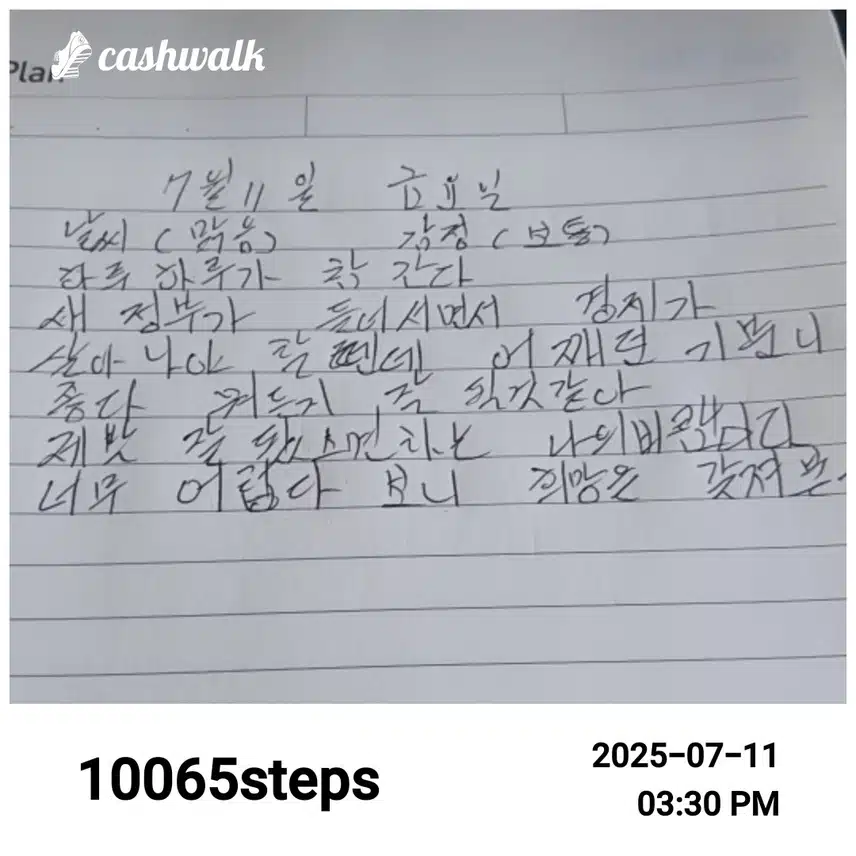 cashwalk
Plan
7월 11일 금요일
날씨 (맑음) 감정 (보통)
하루 하루가 착 간다
새 정부가 들너서면서 경제가
살아 나야 할 덴데 어째던 기분니
좋다 뭐든지 잘 될것같다
제밧 잘 됐스면 하는 나의바램니다
너무 어렵다 보니 희망은 갖져본
10065steps
2025-07-11
03:30 PM